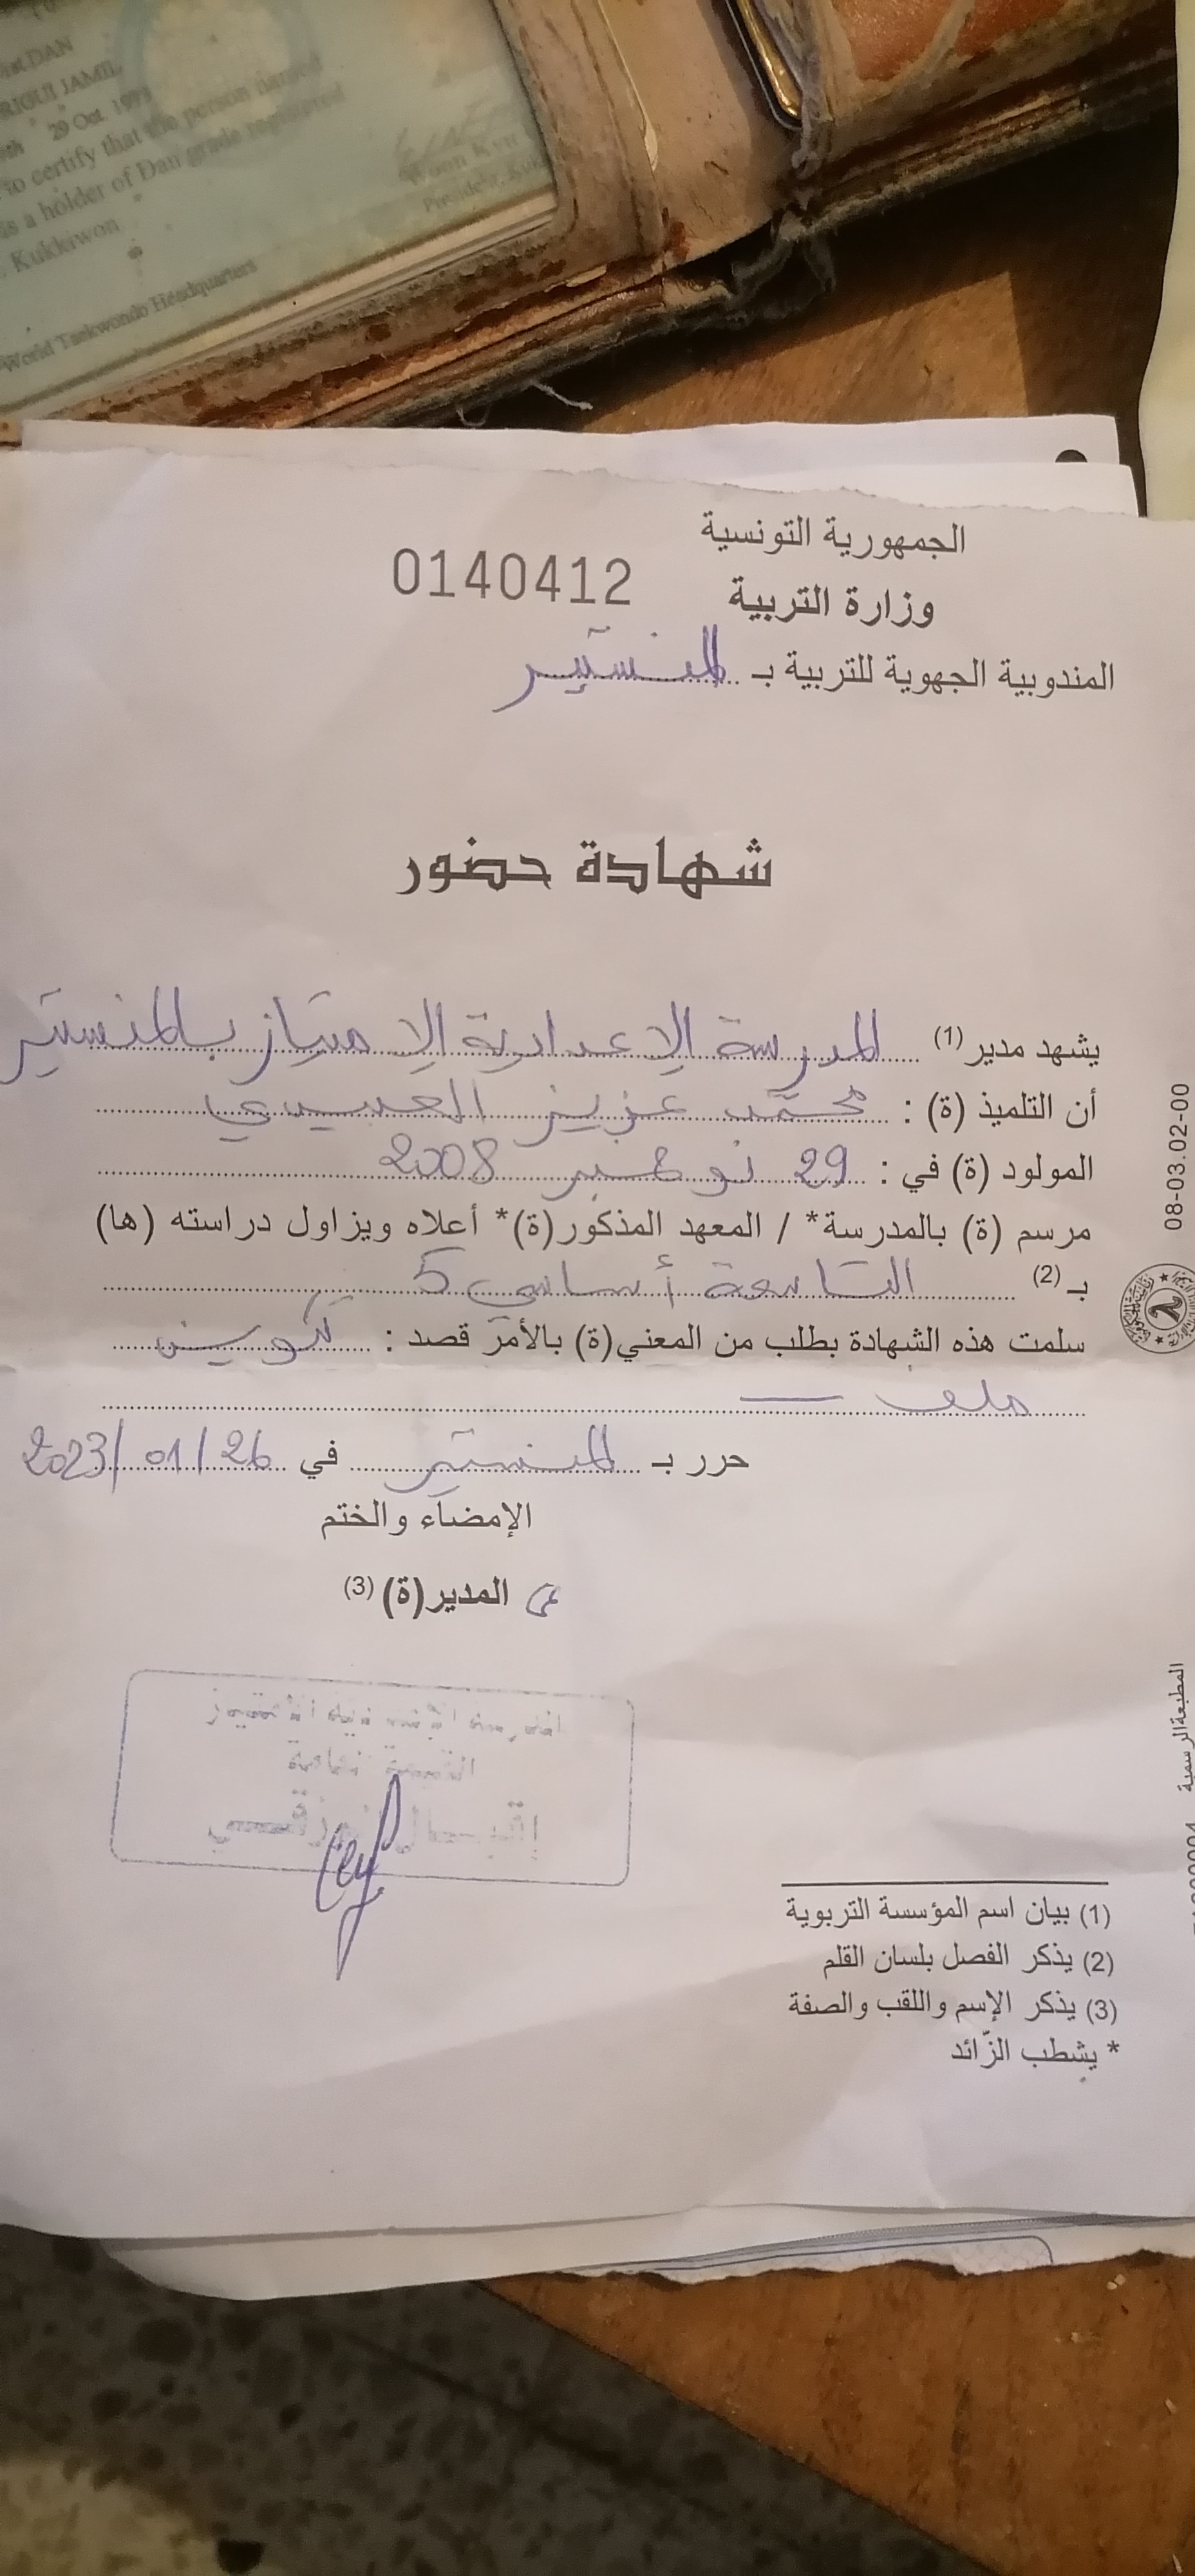 DAN
RIGUI JAMIL
29 Oct. 199
to certify that the person named
is a holder of Dan grade registered
Kukkiwon
World Taekwondo Headquarters
الجمهورية التونسية
0140412
وزارة التربية
المندوبية الجهوية للتربية بـ المنستير
شهادة حضور
يشهد مدير (1) المدرسة الإعدادية الامتياز بالمنستير
أن التلميذ (ة) : محمد عزيز العبيدي
المولود (ة) في : 29 نوفمبر 2008
مرسم (ة) بالمدرسة* / المعهد المذكور(ة)* أعلاه ويزاول دراسته (ها)
بـ (2) التاسعة أساسي 5
سلمت هذه الشهادة بطلب من المعني(ة) بالأمر قصد : تكوين
ملف
حرر بـ المنستير في 2023/01/26
الإمضاء والختم
ع المدير(ة) (3)
(1) بيان اسم المؤسسة التربوية
(2) يذكر الفصل بلسان القلم
(3) يذكر الإسم واللقب والصفة
* يشطب الزّائد
08-03.02-00
المطبعة الرسمية